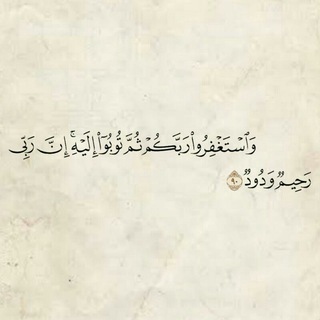 وَٱسْتَغْفِرُوا۟ رَبَّكُمْ ثُمَّ تُوبُوٓا۟ إِلَيْهِ ۚ إِنَّ رَبِّى
رَحِيمٌ وَدُودٌ ۝٩٠